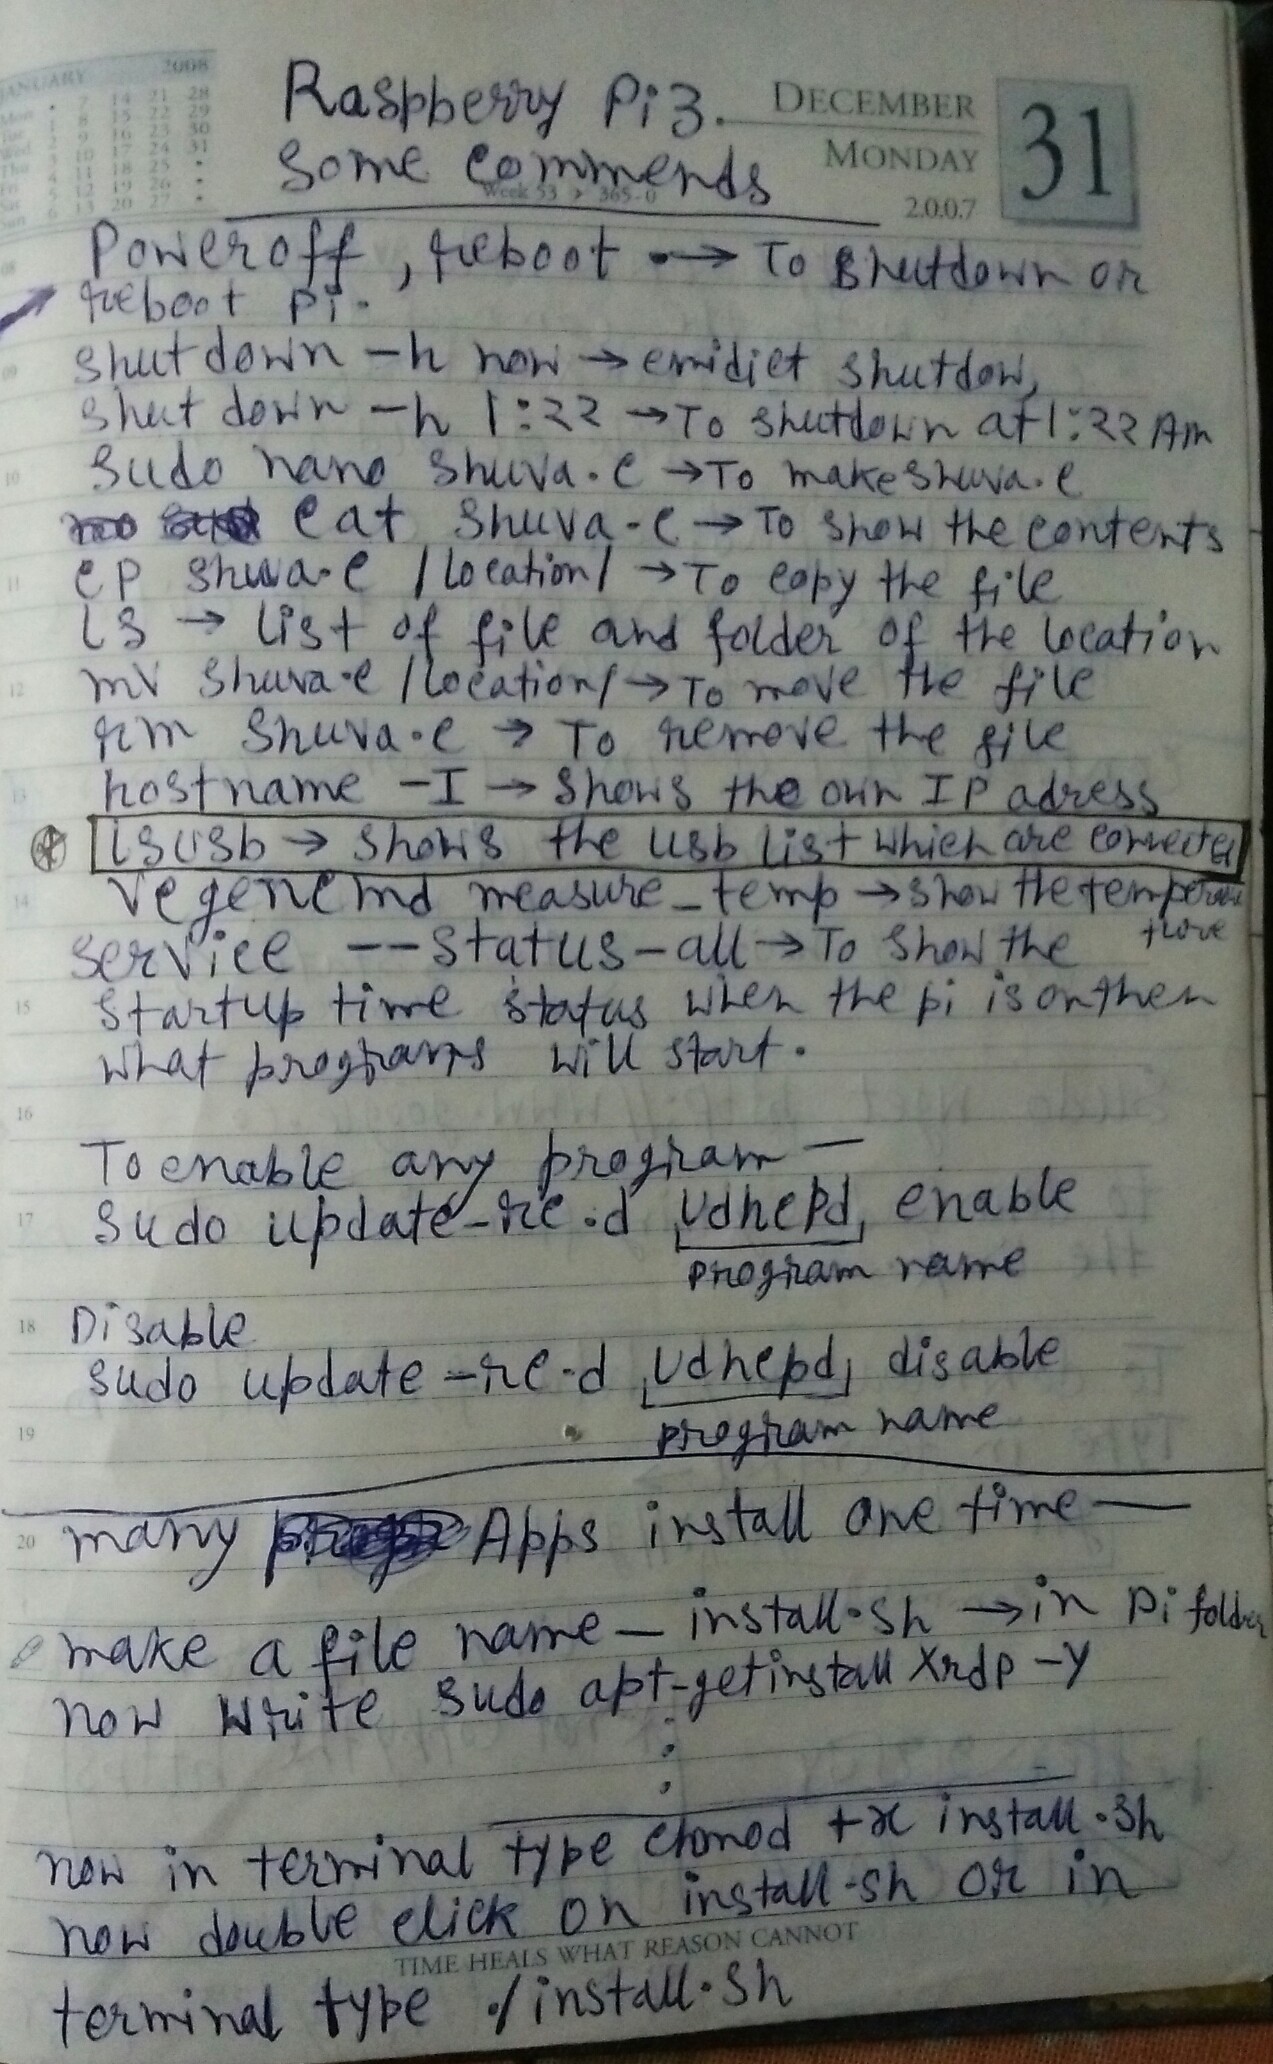 JANUARY 2008
Mon 7 14 21 28
Tue 1 8 15 22 29
Wed 2 9 16 23 30
Thu 3 10 17 24 31
Fri 4 11 18 25
Sat 5 12 19 26
Sun 6 13 20 27
DECEMBER
MONDAY
2.0.0.7
31
Week 53 > 365-0
Raspberry Pi 3.
Some commends
Poweroff, reboot → To Shutdown or
reboot pi.
Shutdown -h now → emidiet shutdow,
Shut down -h 1:22 → To shutdown at 1:22 Am
Sudo nano Shuva.c → To make shuva.c
cat Shuva.c → To show the contents
cp shuva.c /location/ → To copy the file
ls → list of file and folder of the location
mv shuva.c /location/ → To move the file
rm Shuva.c → To remove the file
hostname -I → shows the own IP adress
lsusb → shows the usb list which are connected
vcgencmd measure_temp → show the temper
service --status-all → To show the
startup time status when the pi is on then
what programs will start.
To enable any program —
sudo update-rc.d udhcpd enable
program name
Disable
sudo update-rc.d udhcpd disable
program name
many Apps install one time —
make a file name — install.sh → in pi folder
now write sudo apt-get install xrdp -y
now in terminal type chmod +x install.sh
now double click on install.sh or in
TIME HEALS WHAT REASON CANNOT
terminal type ./install.sh
08
09
10
11
12
13
14
15
16
17
18
19
20